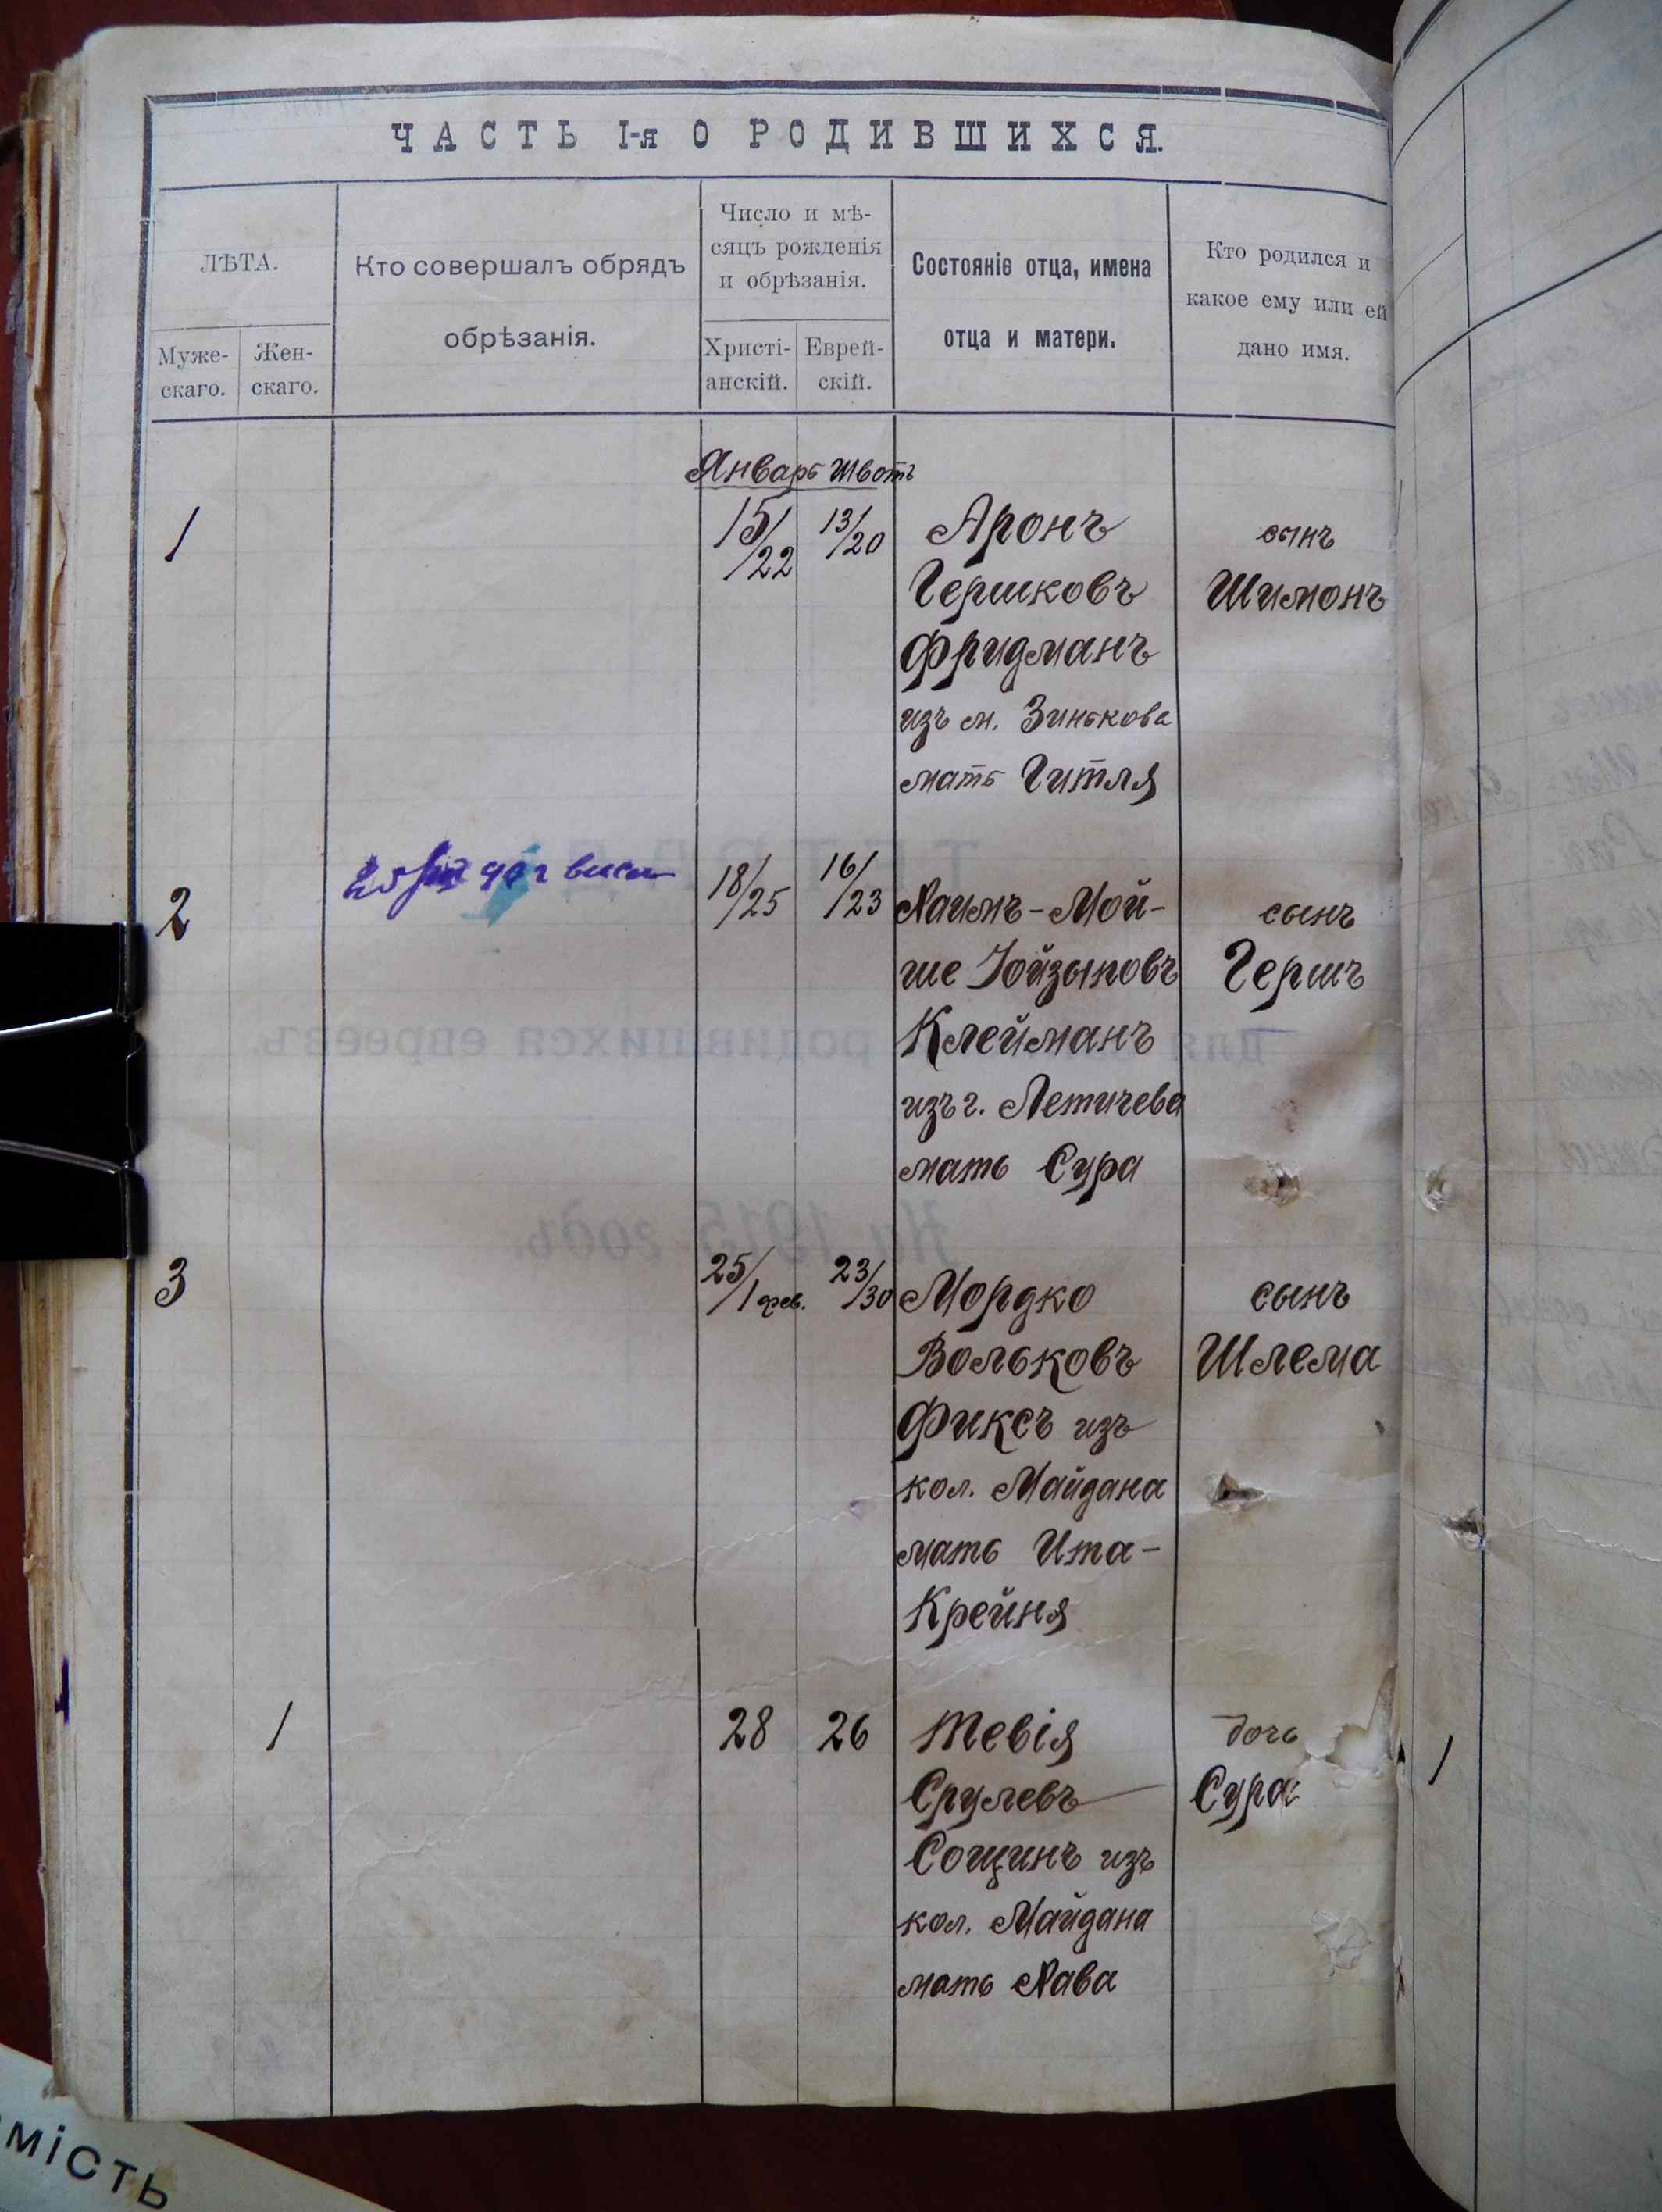 ЧАСТЬ I-я О РОДИВШИХСЯ.
ЛѢТА.
Муже-
скаго.
Жен-
скаго.
Кто совершалъ обрядъ
обрѣзанія.
Число и мѣ-
сяцъ рожденія
и обрѣзанія.
Христі-
анскій.
Еврей-
скій.
Состояніе отца, имена
отца и матери.
Кто родился и
какое ему или ей
дано имя.
Январь Швотъ
1
15/22
13/20
Аронъ
Гершковъ
Фридманъ
изъ м. Зинькова
мать Гитля
сынъ
Шимонъ
2
18/25
16/23
Хаимъ-Мой-
ше Іойзыповъ
Клейманъ
изъ г. Летичева
мать Сура
сынъ
Гершъ
3
25/1 фев.
23/30
Мордко
Вольковъ
Фиксъ изъ
кол. Майдана
мать Ита-
Крейня
сынъ
Шлема
1
28
26
Тевія
Срулевъ
Сощинъ изъ
кол. Майдана
мать Хава
дочь
Сура
1
для родившихся евреевъ.
На 1915 годъ.
мість